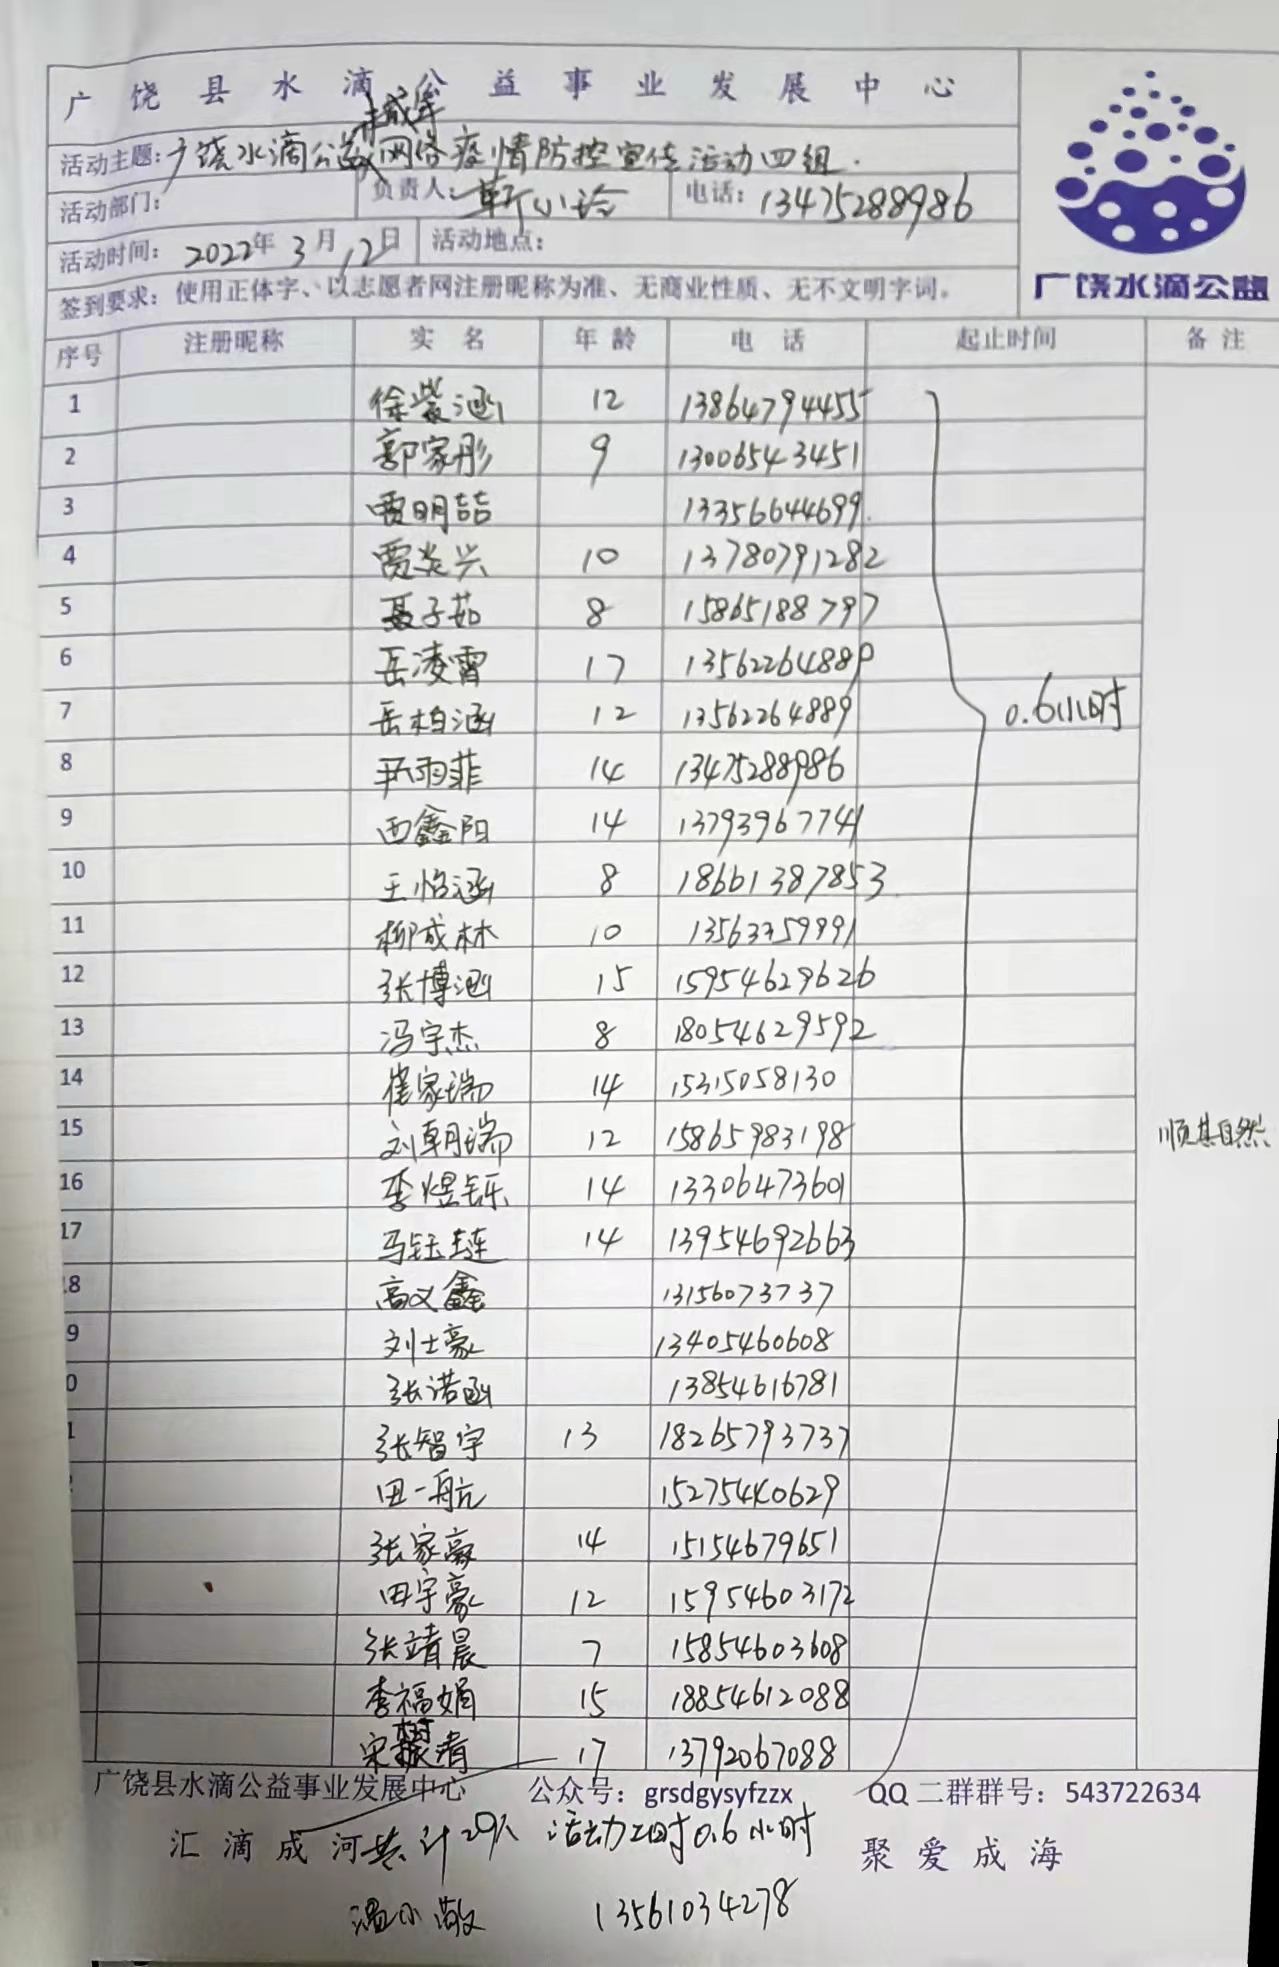 广饶县水滴公益事业发展中心
广饶水滴公益
活动主题：广饶水滴公益网络疫情防控宣传活动四组.
活动部门： 负责人：靳小玲 电话：13475288986
活动时间：2022年3月12日 活动地点：
签到要求：使用正体字、以志愿者网注册昵称为准、无商业性质、无不文明字词。
序号 注册昵称 实名 年龄 电话 起止时间 备注
1 徐紫涵 12 13864794455
2 郭家彤 9 13006543451
3 贾明喆 13356644699
4 贾炎兴 10 13780791282
5 聂子茹 8 15865188797
6 岳凌霄 17 13562264889
7 岳柏涵 12 13562264889 0.6小时
8 雨菲 14 13475288986
9 西鑫阳 14 13793967741
10 王怡涵 8 18661387853
11 柳成林 10
12 张博涵 15 15954629626
13 冯宇杰 8 18054629592
14 崔家瑞 14 15315058130
15 刘朝瑞 12 15865983198 顺其自然
16 李煜铄 14 13306473601
17 马钰琏 14 13954692663
18 高义鑫 13156073737
9 刘士豪 13405460608
0 张诺函 13854616781
1 张智宇 13 18265793737
田一航 15275440629
张家豪 14 15154679651
田宇豪 12 15954603172
张靖晨 7 15854603608
李福娟 15 18854612088
宋清 17 13792067088
广饶县水滴公益事业发展中心 公众号：grsdgysyfzzx QQ二群群号：543722634
汇滴成河 共计29人 活动工时0.6小时 聚爱成海
温小敬 13561034278